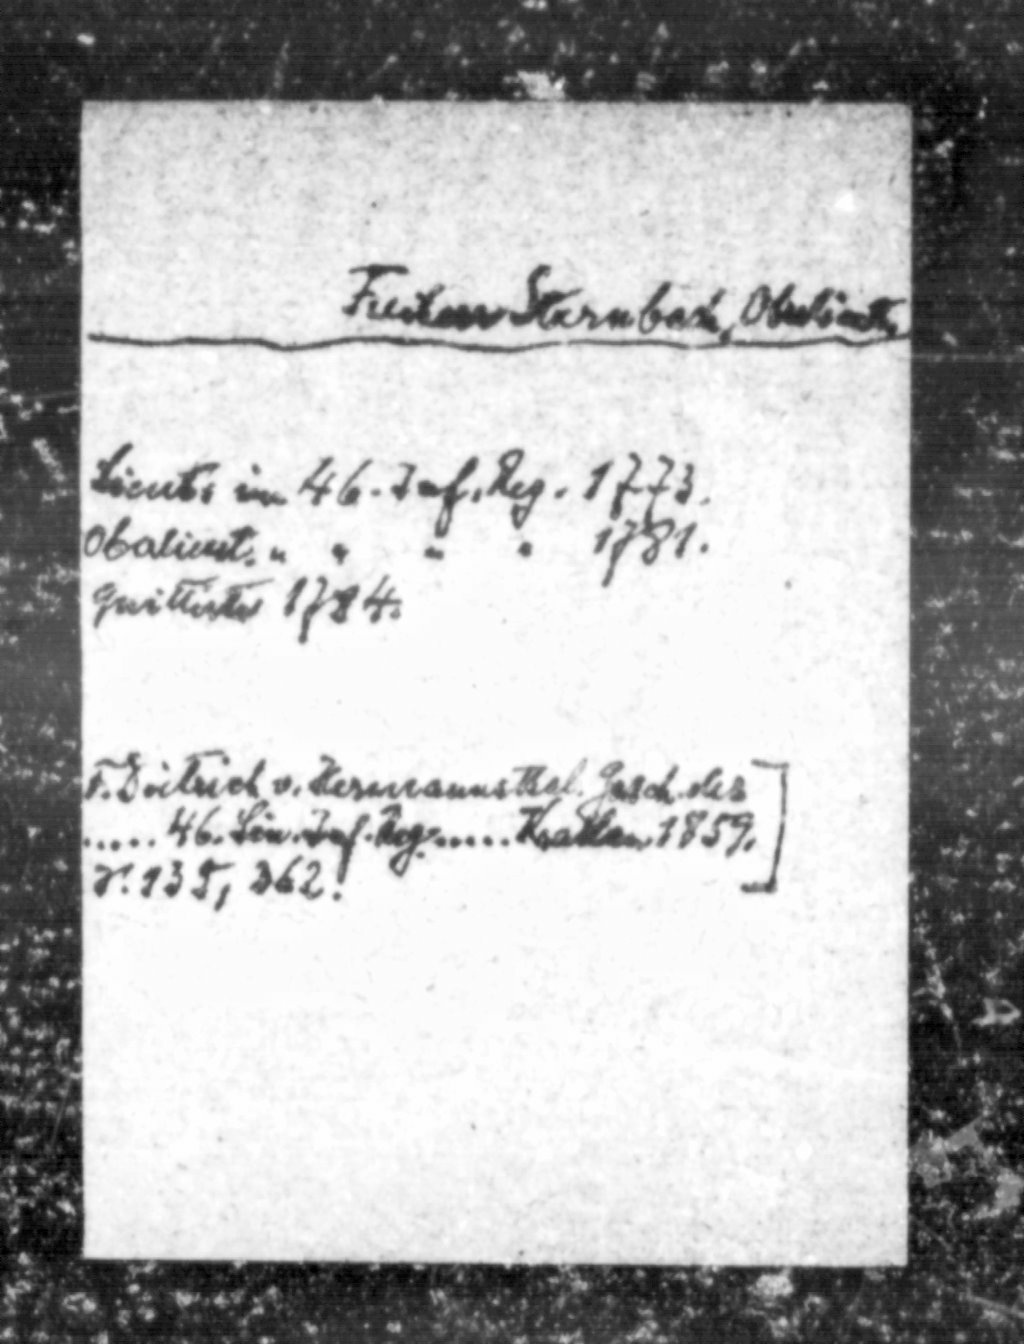 Freiherr Sternbach, Oberlieut.
Lieut. im 46. Inf. Reg. 1773.
Oberlieut. " " " " 1781.
Quittierte 1784.
F. Dietrich v. Hermannsthal. Gesch. des
..... 46. Lin. Inf. Reg. ..... Krakau 1859.
S. 135, 362.